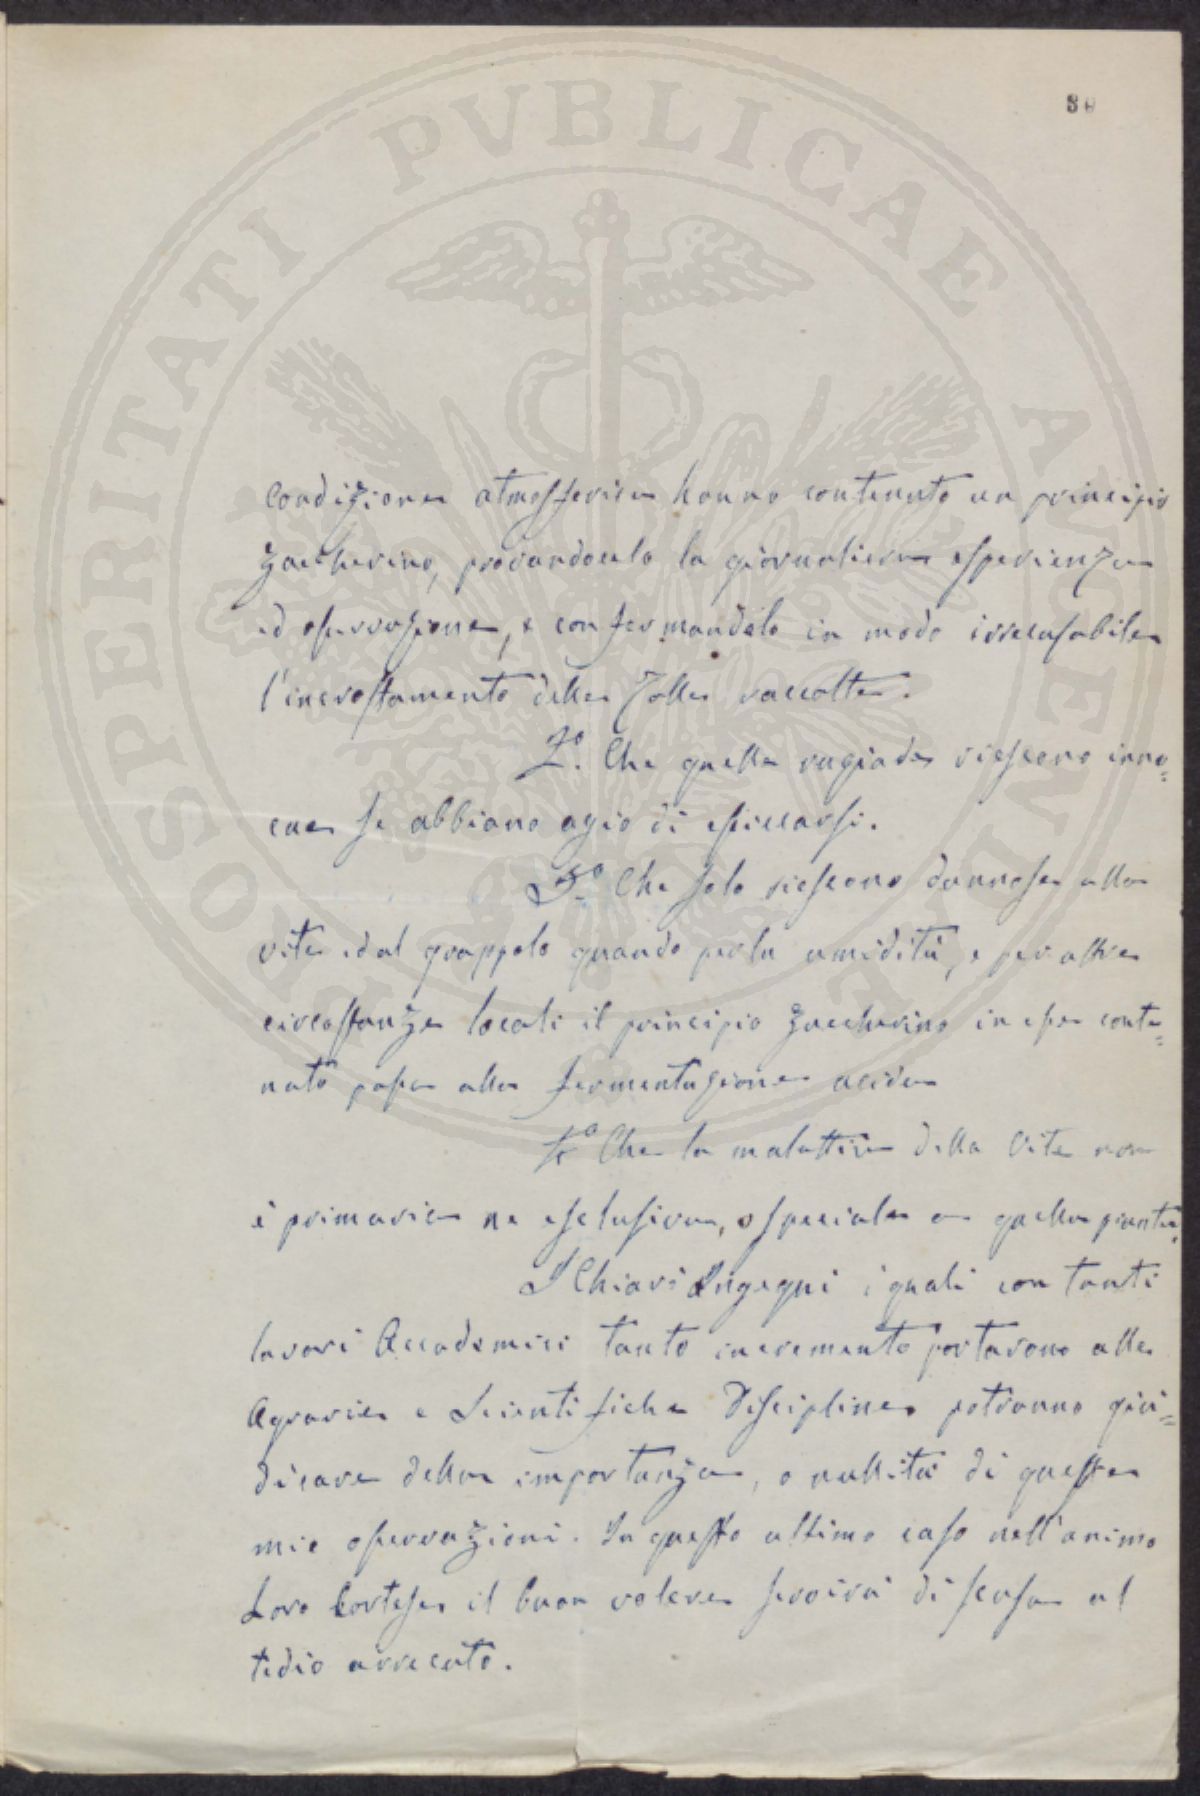 PROSPERITATI PUBLICAE AUGENDAE
condizione atmosferica hanno contenuto un principio
zuccherino, provandocelo la giornaliera esperienza
ed osservazione, e confermandolo in modo irrecusabile
l'incrostamento delle zolle raccolte.
2.º Che quelle rugiade riescono inno=
cue se abbiano agio di essiccarsi.
3.º Che solo riescono dannose alla
vite ed al grappolo quando per la umidità, e per altre
circostanze locali il principio zuccherino in esse conte=
nuto passa alla fermentazione acida
4.º Che la malattia della Vite non
è primaria ne esclusiva, o speciale a quella pianta.
I Chiari Ingegni i quali con tanti
lavori Accademici tanto incremento portarono alle
Agrarie e Scientifiche Discipline potranno giu=
dicare della importanza, o nullità di queste
mie osservazioni. In questo ultimo caso nell'animo
Loro Cortese il buon volere servirà di scusa al
tedio arrecato.